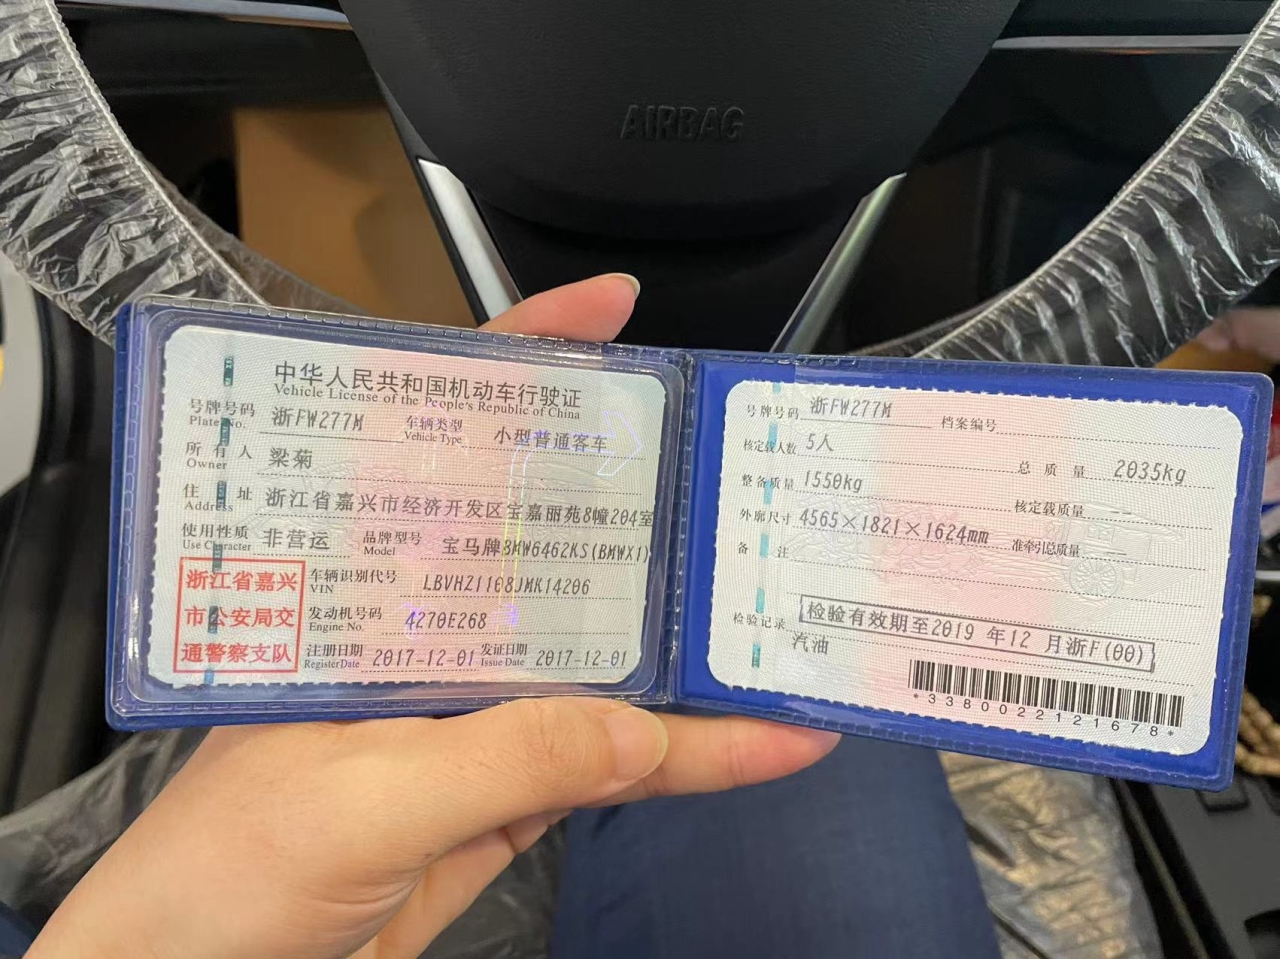 AIRBAG
中华人民共和国机动车行驶证
Vehicle License of the People's Republic of China
号牌号码 浙FW277M 车辆类型 小型普通客车
Plate No. Vehicle Type
所有人 梁菊
Owner
住址 浙江省嘉兴市经济开发区宝嘉丽苑8幢204室
Address
使用性质 非营运 品牌型号 宝马牌BMW6462KS(BMWX1)
Use Character Model
浙江省嘉兴
市公安局交
通警察支队
车辆识别代号 LBVHZ1108JMK14206
VIN
发动机号码 4270E268
Engine No.
注册日期 2017-12-01 发证日期 2017-12-01
Register Date Issue Date
号牌号码 浙FW277M 档案编号
核定载人数 5人 总质量 2035kg
整备质量 1550kg 核定载质量 --
外廓尺寸 4565×1821×1624mm 准牵引总质量 --
备注
检验记录 检验有效期至2019年12月浙F(00)
汽油
*3380022121678*